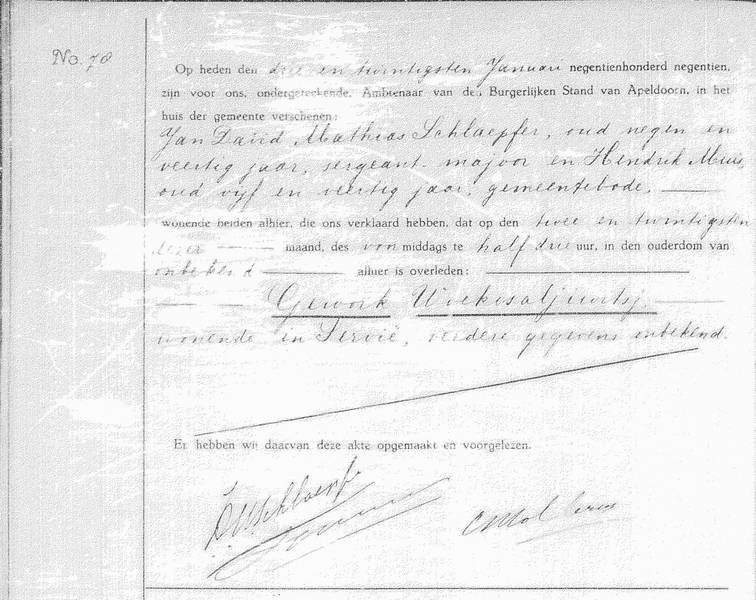 No. 78
Op heden den drie en twintigsten Januari negentienhonderd negentien,
zijn voor ons, ondergeteekende, Ambtenaar van den Burgerlijken Stand van Apeldoorn, in het
huis der gemeente verschenen:
Jan David Mathias Schlaepfer, oud negen en
veertig jaar, sergeant-majoor en Hendrik Muis,
oud vijf en veertig jaar, gemeentebode,
wonende beiden alhier, die ons verklaard hebben, dat op den twee en twintigsten
dezer maand, des voormiddags te half drie uur, in den ouderdom van
onbekend alhier is overleden:
Gework
wonende in Servië, verdere gegevens onbekend.
Er hebben wij daarvan deze akte opgemaakt en voorgelezen.
Schlaepfer